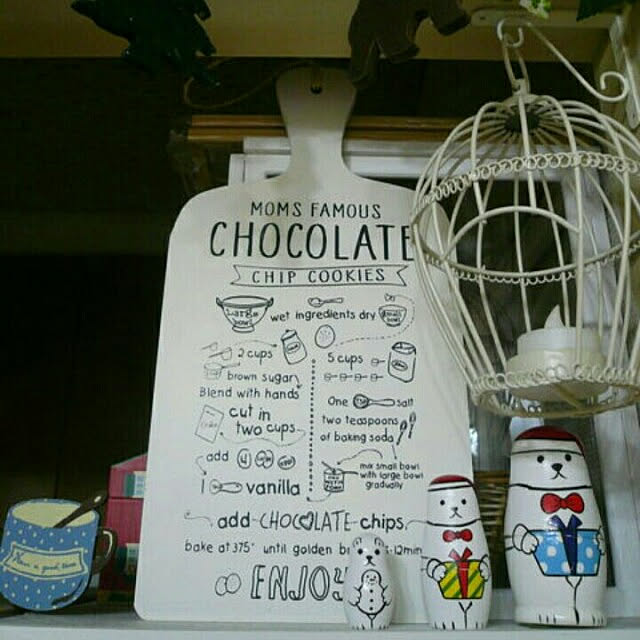 MOMS FAMOUS
CHOCOLATE
CHIP COOKIES
LARGE bowl
wet ingredients dry
small bowl
2 cups
brown sugar
Blend with hands
cut in
two cups
add 4
1 vanilla
5 cups
One salt
two teaspoons
of baking soda
mix small bowl
with large bowl
gradually
add CHOCOLATE chips
bake at 375° until golden 12min
ENJOY
Have a good time